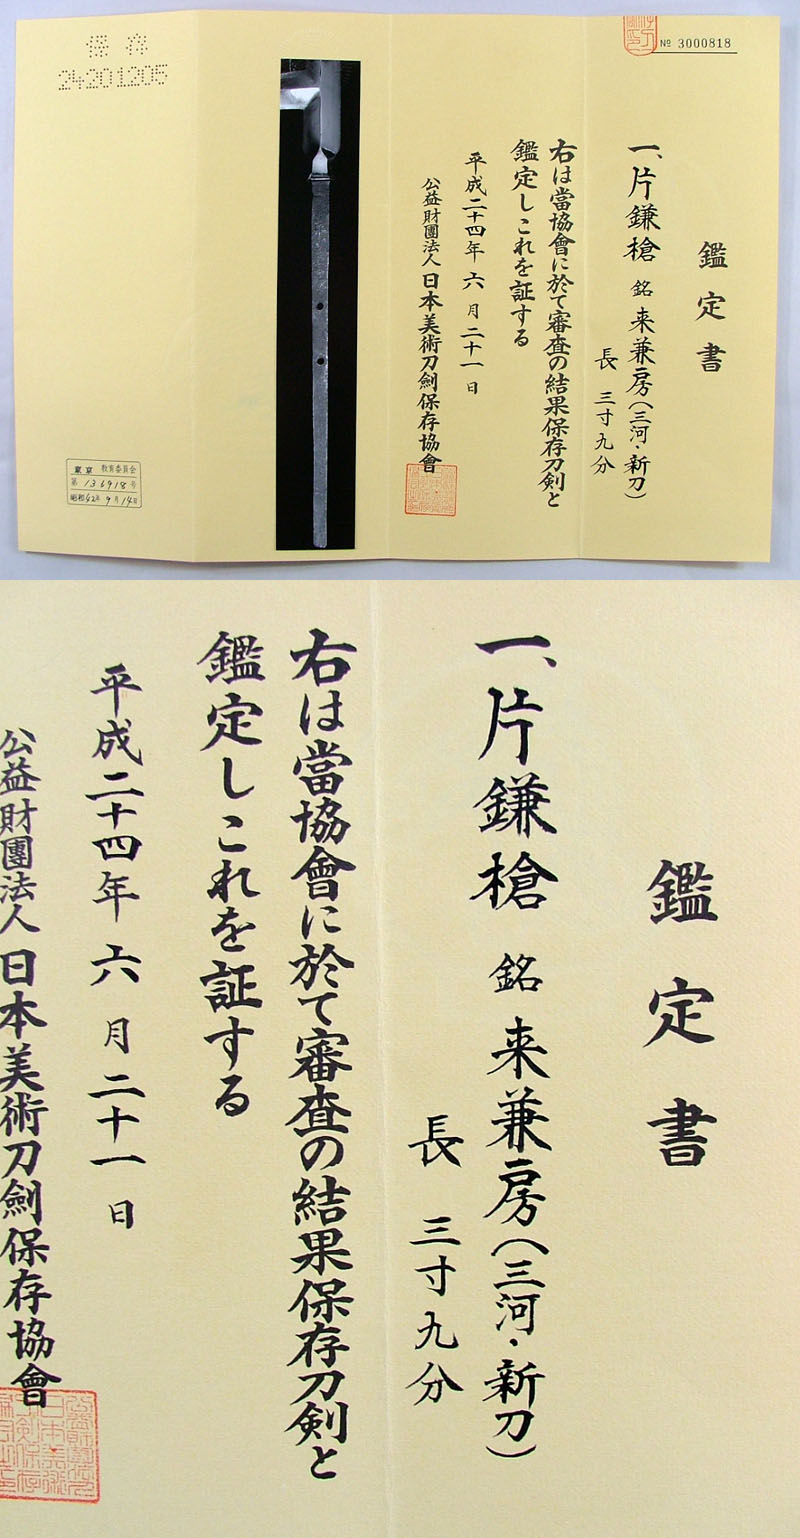 № 3000818
鑑定書
一、片鎌槍 銘 来兼房(三河・新刀)
長 三寸九分
右は當協會に於て審査の結果保存刀剣と
鑑定しこれを証する
平成二十四年 六 月 二十一 日
公益財團法人 日本美術刀劍保存協會
保存
24201205
東京 教育委員会
第 136918 号
昭和42年 9月 14日
鑑定書
一、片鎌槍 銘 来兼房(三河・新刀)
長 三寸九分
右は當協會に於て審査の結果保存刀剣と
鑑定しこれを証する
平成二十四年 六 月 二十一 日
公益財團法人 日本美術刀劍保存協會